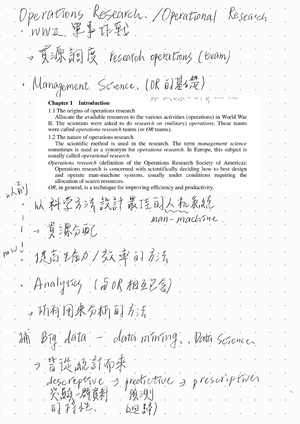 Operations Research. / Operational Research
· WWII. 軍事作戰
→ 資源調度 research operations (team)
· Management Science. (OR的基礎)
Chapter 1 Introduction
1.1 The origins of operations research
Allocate the available resources to the various activities (operations) in World War
II. The scientists were asked to do research on (military) operations. These teams
were called operations research teams (or OR teams).
1.2 The nature of operations research
The scientific method is used in the research. The term management science
sometimes is used as a synonym for operations research. In Europe, this subject is
usually called operational research.
Operations research (definition of the Operations Research Society of America):
Operations research is concerned with scientifically deciding how to best design
and operate man-machine systems, usually under conditions requiring the
allocation of scarce resources.
OR, in general, is a technique for improving efficiency and productivity.
以科學方法設計最佳的人机系統
man-machine.
→ 資源分配
now
· 提高生產力/效率的方法
· Analytics (與OR相互包含)
→ 所有用來分析的方法
補 Big data - data mining, Data Science
→ 皆從統計而來
descreptive → predictive → prescriptive
預測
的特性.
(迴歸)